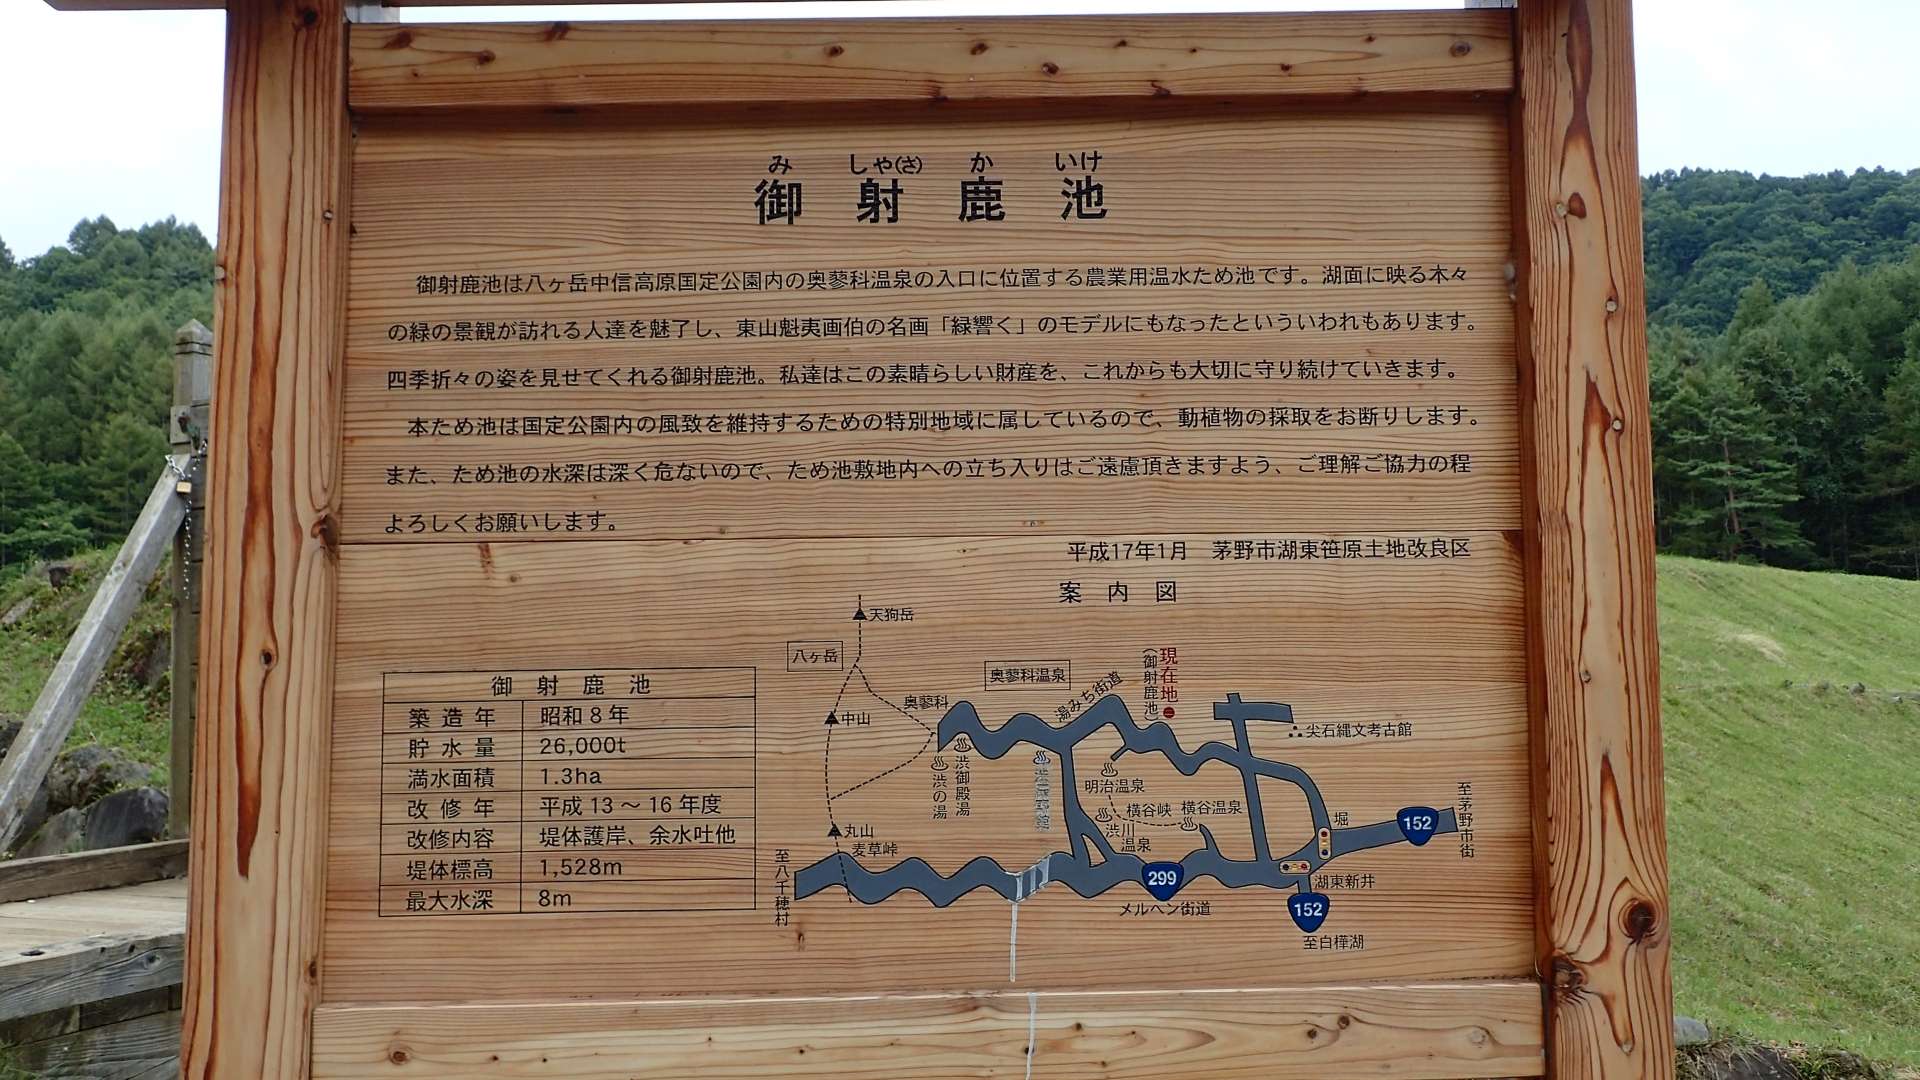 み しゃ(さ) か いけ
御射鹿池
御射鹿池は八ヶ岳中信高原国定公園内の奥蓼科温泉の入口に位置する農業用温水ため池です。湖面に映る木々
の緑の景観が訪れる人達を魅了し、東山魁夷画伯の名画「緑響く」のモデルにもなったといういわれもあります。
四季折々の姿を見せてくれる御射鹿池。私達はこの素晴らしい財産を、これからも大切に守り続けていきます。
本ため池は国定公園内の風致を維持するための特別地域に属しているので、動植物の採取をお断りします。
また、ため池の水深は深く危ないので、ため池敷地内への立ち入りはご遠慮頂きますよう、ご理解ご協力の程
よろしくお願いします。
平成17年1月 茅野市湖東笹原土地改良区
案内図
御射鹿池
築造年 昭和8年
貯水量 26,000t
満水面積 1.3ha
改修年 平成13～16年度
改修内容 堤体護岸、余水吐他
堤体標高 1,528m
最大水深 8m
天狗岳
八ヶ岳
中山
丸山
麦草峠
至八千穂村
奥蓼科
奥蓼科温泉
湯みち街道
現在地
(御射鹿池)
尖石縄文考古館
渋御殿湯
渋の湯
明治温泉
横谷峡
横谷温泉
渋川
温泉
堀
152
至茅野市街
299
メルヘン街道
湖東新井
152
至白樺湖